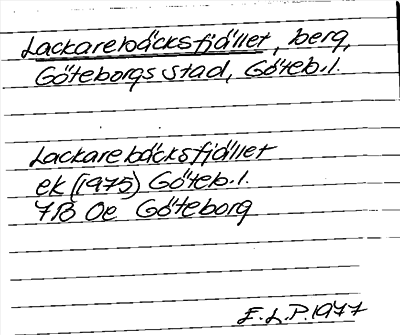 Lackarebäcksfjället, berg,
Göteborgs stad, Göteb.l.
Lackarebäcksfjället
ek (1975) Göteb.l.
7B 0e Göteborg
E.L.P. 1977